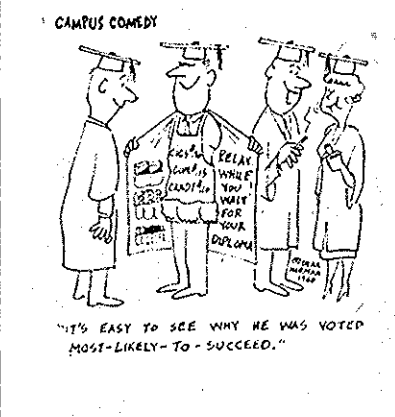 CAMPUS COMEDY
CIGS
GUM
CANDY
RELAX
WHILE
YOU
WAIT
FOR
YOUR
DIPLOMA
1960
"IT'S EASY TO SEE WHY HE WAS VOTED
MOST-LIKELY-TO-SUCCEED."